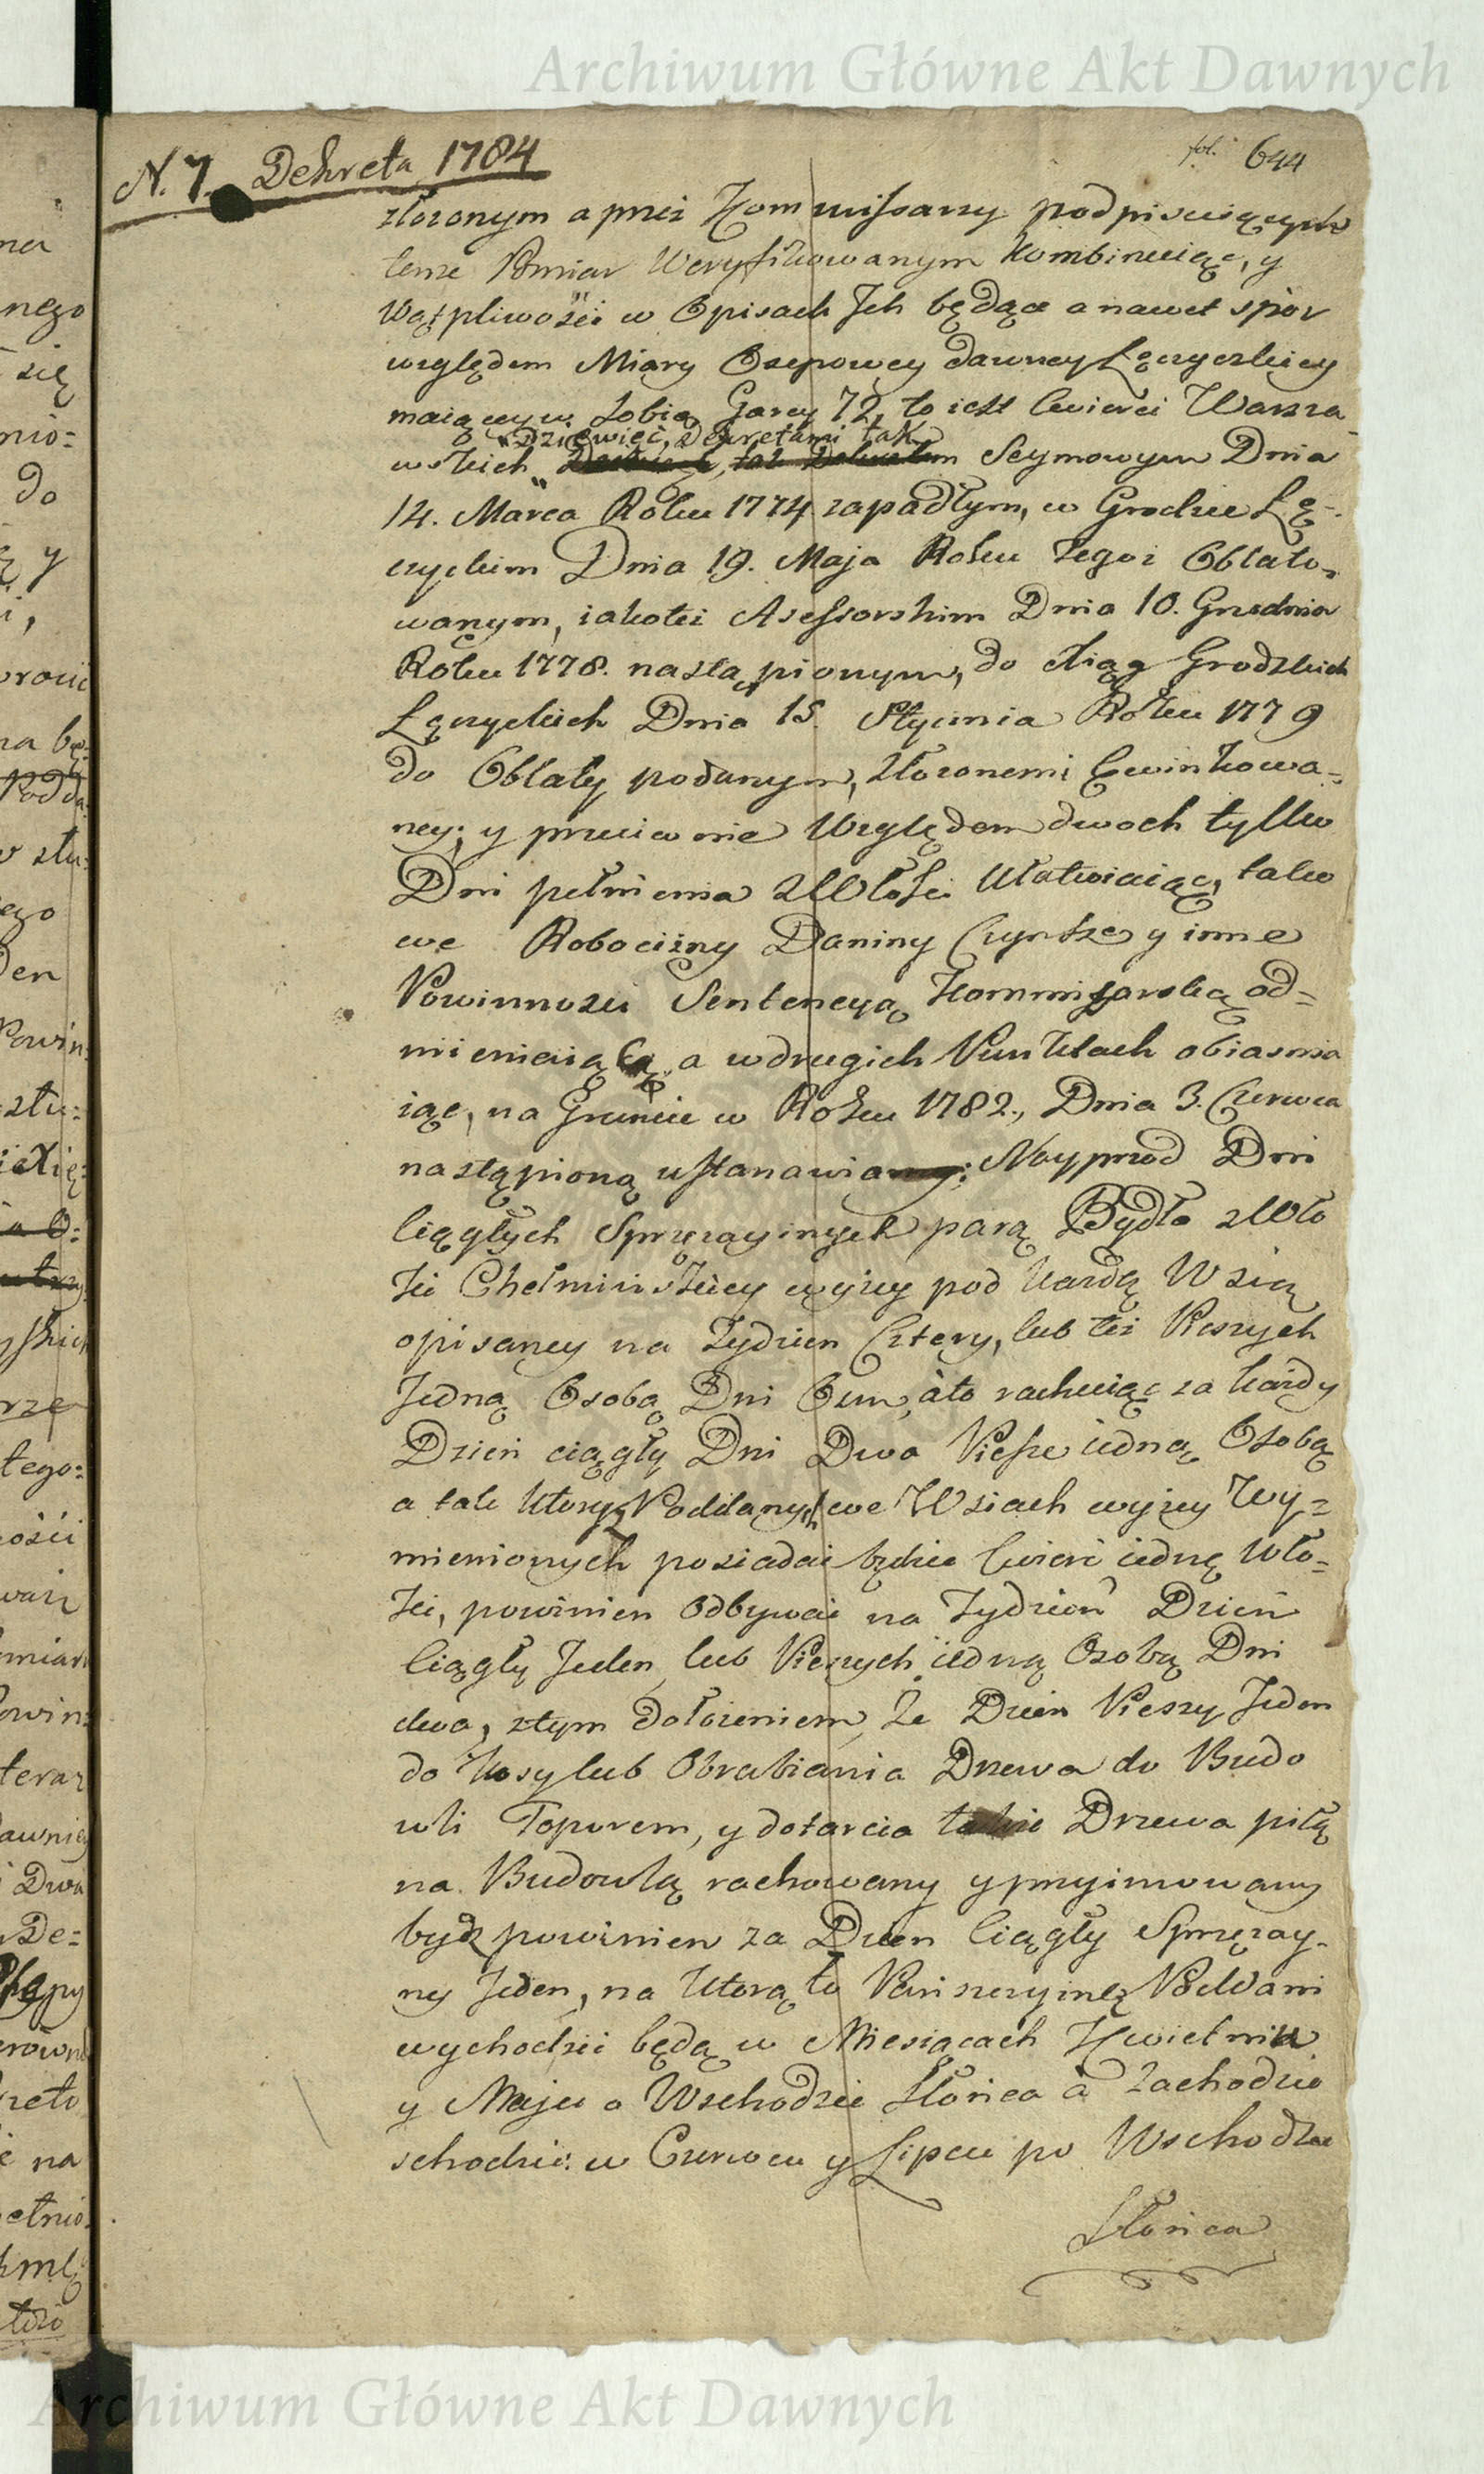 Archiwum Główne Akt Dawnych
N. 7. Dekreta 1784
fol. 644
złozonym a przez Kommissarzy podpisuiących
tenze Pomiar Weryfikowanym kombinuiąc, y
Wątpliwości w Opisach Jch będące a nawet spór
względem Miary Osepowey dawney Łęczyckiey
maiącey w Sobie Garcy 72, to iest Cwierci Warsza-
wskich „dziewięć, dekretami tak Seymowym Dnia
14. Marca Roku 1774 zapadłym, w Grodzie Łę-
czyckim Dnia 19. Maja Roku tegoż Oblato-
wanym, iakoteż Asessorskim Dnia 10. Grudnia
Roku 1778. nastąpionym, do Xiąg Grodzkich
Łęczyckich Dnia 15. Stycznia Roku 1779
do Oblaty podanym, złozonemi Ewinkowa-
ney; y przeciwnie Względem dwoch tylko
Dni pełnienia z Włoki Ułatwiaiąc, tako
we Robocizny Daniny Czynsze y inne
Powinnosci Sentencyą Kommissarską od-
mieniaiącą a w drugich Punktach obiasnia
iąc, na Gruncie w Roku 1782., Dnia 3. Czerwca
nastąpioną ustanawia; Nayprzod Dni
Ciągłych Sprzężaynych parą Bydła z Wło
ki Chełminskiey wyzey pod kazdą Wsią
opisaney na Tydzien Cztery, lub też Pieszych
Jedną Osobą Dni Osm, a to rachuiąc za kazdy
Dzień ciągły Dni Dwa Piesze iedną Osobą
a tak ktory z Poddanych we Wsiach wyzey Wy-
mienionych posiadać będzie Cwierć iednę Wło-
ki, powinien Odbywać na Tydzień Dzień
Ciągły Jeden, lub Pieszych iedną Osobą Dni
dwa, z tym dołozeniem, Ze Dzień Pieszy Jeden
do Kosy lub Obrabiania Drzewa do Budo
wli Toporem, y do tarcia takie Drzewa piłą
na Budowlą rachowany y przyimowany
bydz powinien za Dzien Ciągły Sprzężay-
ny Jeden, na ktorą to Panszczyznę Poddani
wychodzić będą w Miesiącach Kwietniu
y Maju o Wschodzie Słońca a Zachodzie
schodzić: w Czerwcu y Lipcu po Wschodzie
Słońca
Archiwum Główne Akt Dawnych